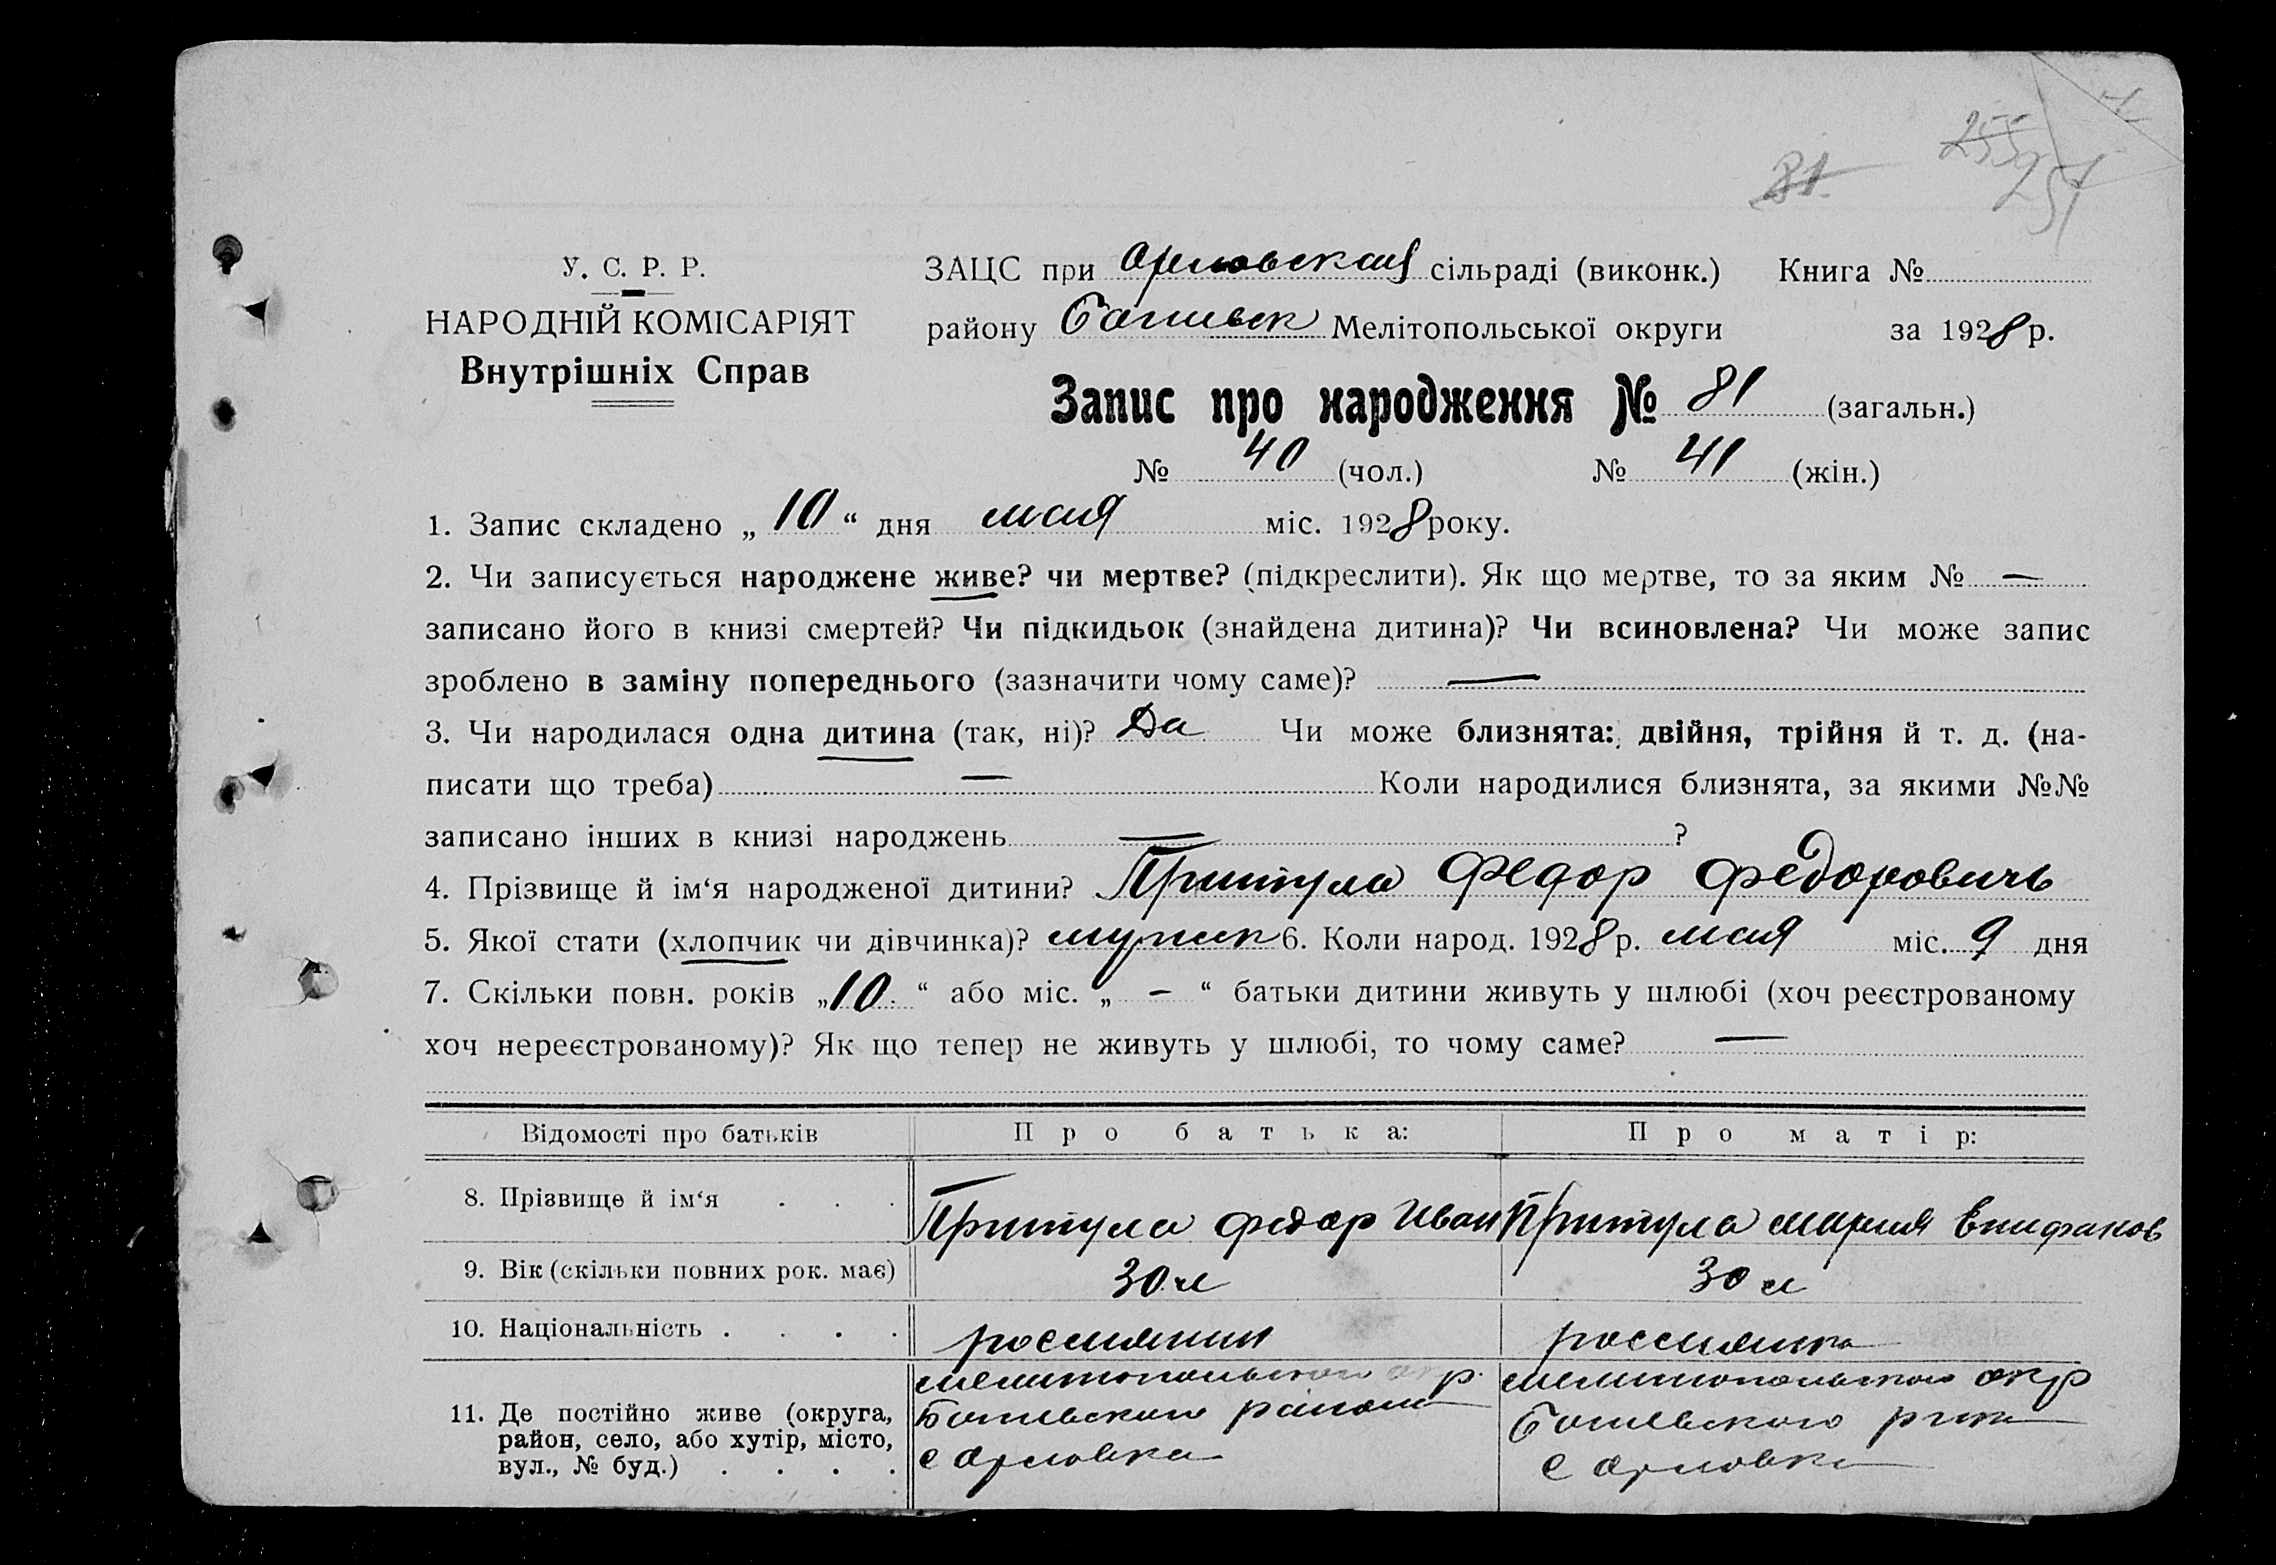 255
81.
251
У. С. Р. Р.
НАРОДНІЙ КОМІСАРІЯТ
Внутрішніх Справ
ЗАЦС при Орловская сільраді (виконк.) Книга №
району Ботиевск Мелітопольської округи за 1928 р.
Запис про народження № 81 (загальн.)
№ 40 (чол.) № 41 (жін.)
1. Запис складено „ 10 “ дня мая міс. 1928 року.
2. Чи записується народжене живе? чи мертве? (підкреслити). Як що мертве, то за яким № —
записано його в книзі смертей? Чи підкидьок (знайдена дитина)? Чи всиновлена? Чи може запис
зроблено в заміну попереднього (зазначити чому саме)? —
3. Чи народилася одна дитина (так, ні)? Да Чи може близнята: двійня, трійня й т. д. (на-
писати що треба) — Коли народилися близнята, за якими №№
записано інших в книзі народжень — ?
4. Прізвище й ім‘я народженої дитини? Притула Федор Федоровичь
5. Якої стати (хлопчик чи дівчинка)? мужск 6. Коли народ. 1928 р. мая міс. 9 дня
7. Скільки повн. років „ 10. “ або міс. „ – “ батьки дитини живуть у шлюбі (хоч реєстрованому
хоч нереєстрованому)? Як що тепер не живуть у шлюбі, то чому саме? —
Відомості про батьків Про батька: Про матір:
8. Прізвище й ім‘я . . . Притула Федор Иван Притула Мария
9. Вік (скільки повних рок. має) 30 л 30 л
10. Національність . . . . россиянин россиянка
мелитопольского окр. мелитопольского окр
11. Де постійно живе (округа, Ботиевского района Ботиевского
район, село, або хутір, місто, с Орловка с Орловка
вул., № буд.) . . . .